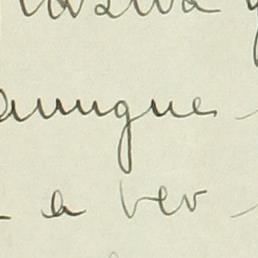 aunque -
- a ver -